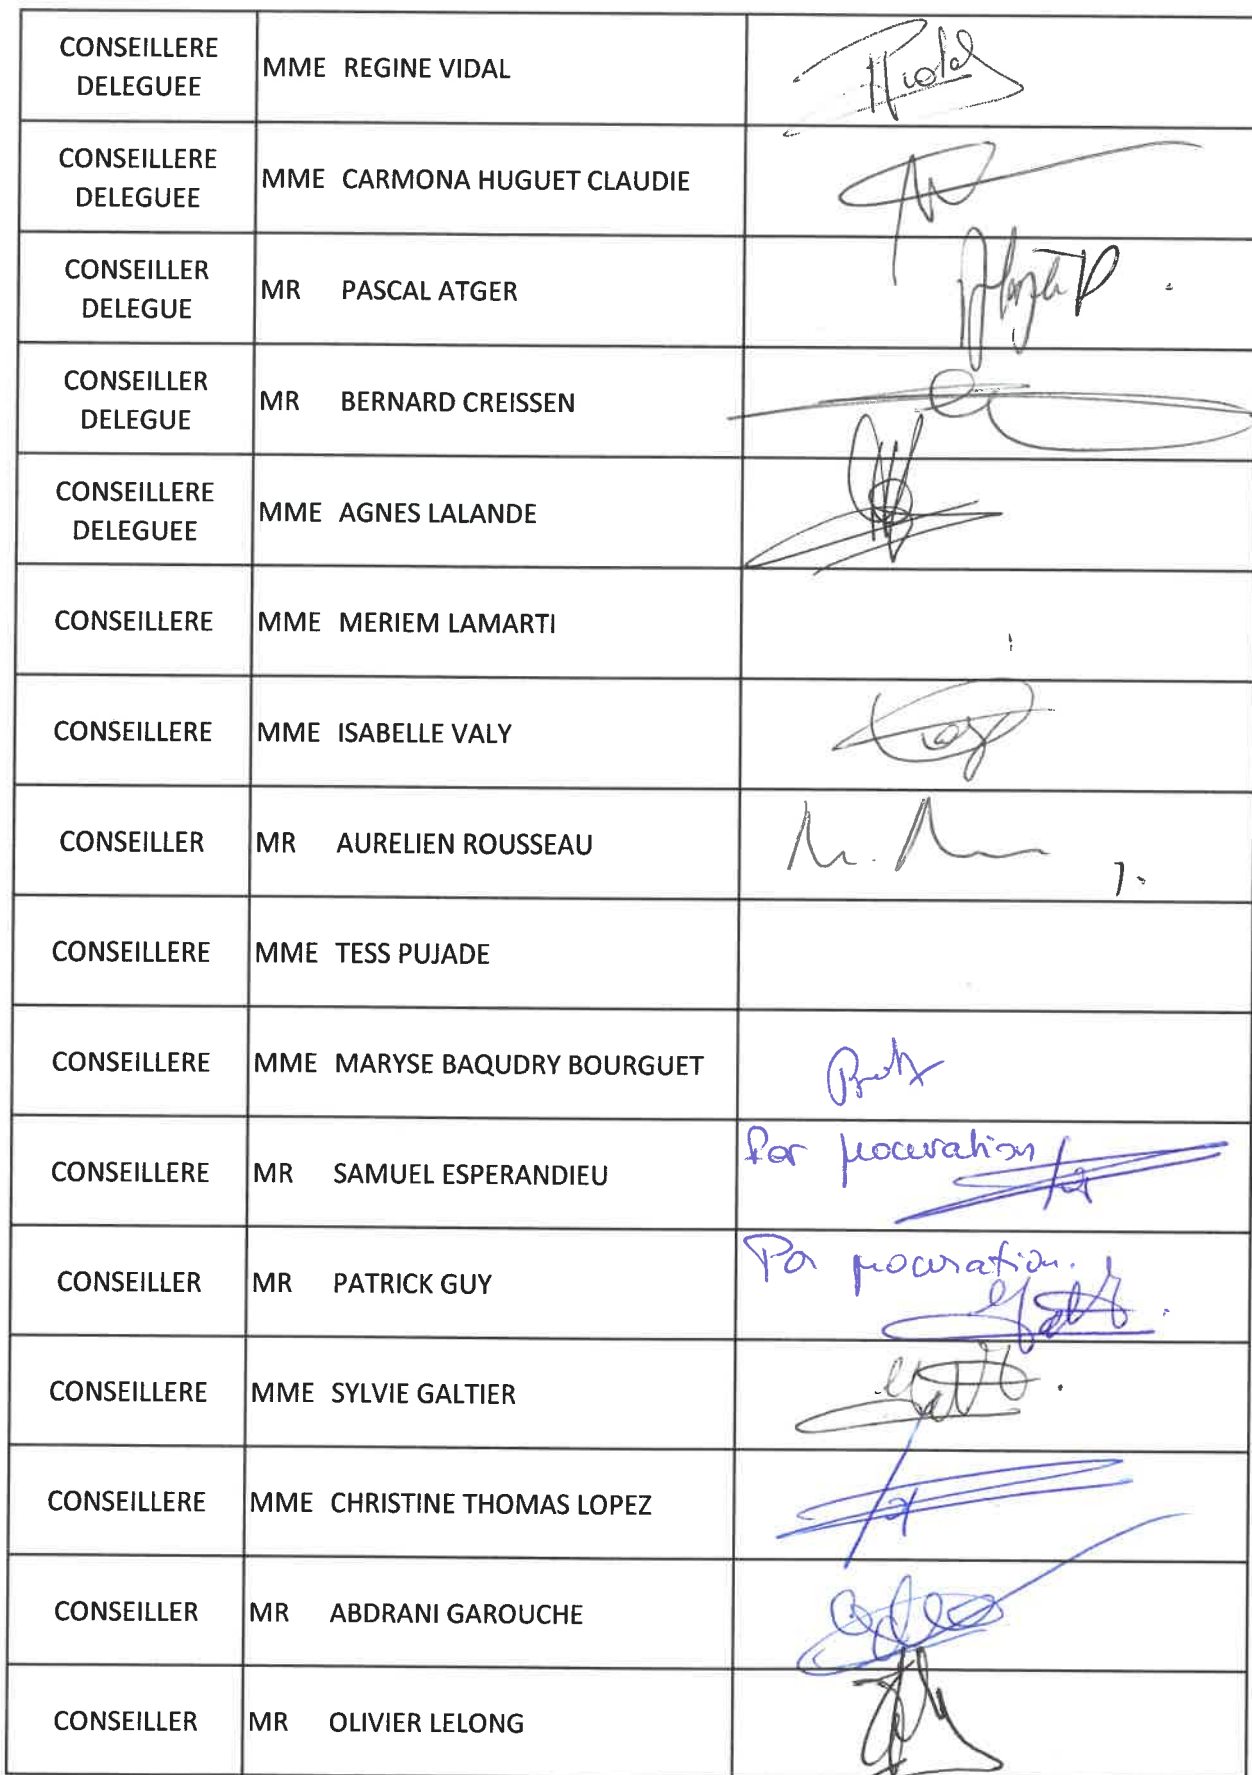 CONSEILLERE
DELEGUEE
MME REGINE VIDAL
CONSEILLERE
DELEGUEE
MME CARMONA HUGUET CLAUDIE
CONSEILLER
DELEGUE
MR PASCAL ATGER
CONSEILLER
DELEGUE
MR BERNARD CREISSEN
CONSEILLERE
DELEGUEE
MME AGNES LALANDE
CONSEILLERE MME MERIEM LAMARTI
CONSEILLERE MME ISABELLE VALY
CONSEILLER MR AURELIEN ROUSSEAU
CONSEILLERE MME TESS PUJADE
CONSEILLERE MME MARYSE BAQUDRY BOURGUET
CONSEILLERE MR SAMUEL ESPERANDIEU Par procuration
CONSEILLER MR PATRICK GUY Par procuration.
CONSEILLERE MME SYLVIE GALTIER
CONSEILLERE MME CHRISTINE THOMAS LOPEZ
CONSEILLER MR ABDRANI GAROUCHE
CONSEILLER MR OLIVIER LELONG